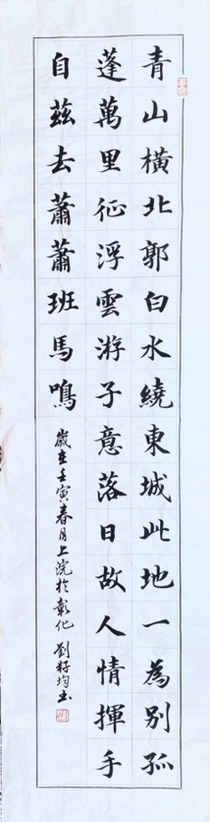 青山橫北郭白水繞東城此地一為別孤
蓬萬里征浮雲游子意落日故人情揮手
自茲去蕭蕭班馬鳴
歲在壬寅春月上浣於彰化 劉籽均书